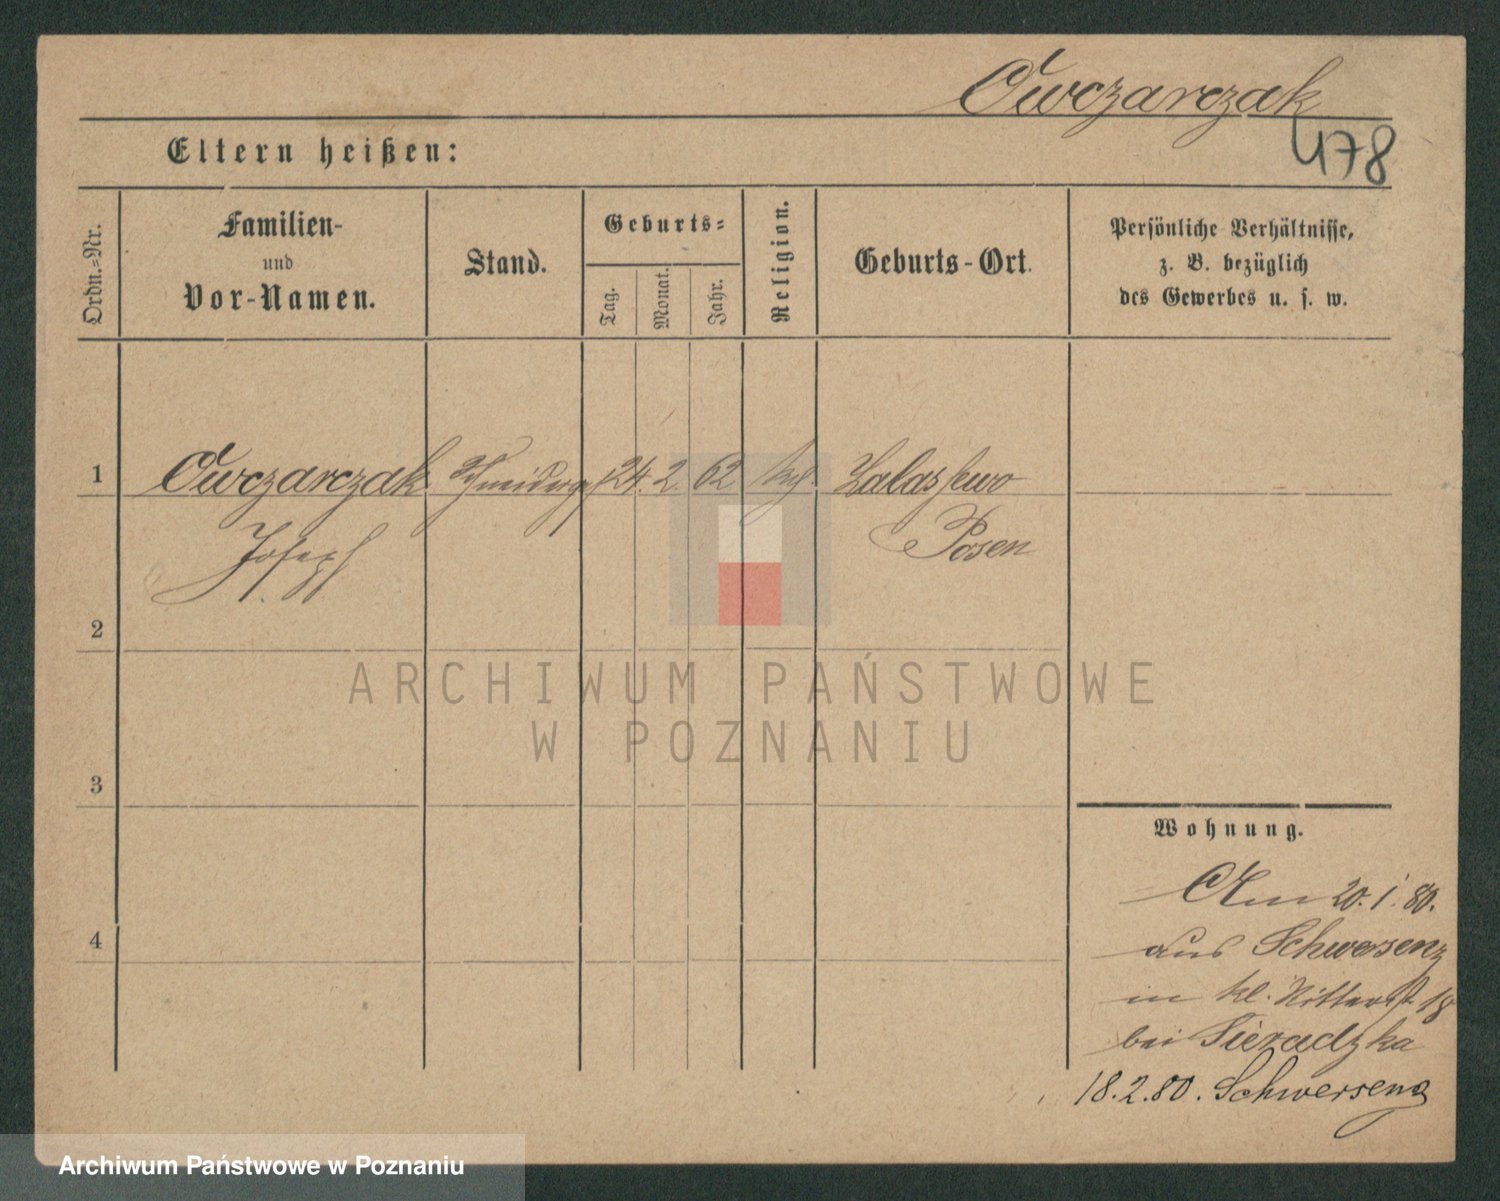 Owczarczak
478
Eltern heißen:
Ordn.=Nr.
Familien-
und
Vor-Namen.
Stand.
Geburts=
Tag.
Monat.
Jahr.
Religion.
Geburts-Ort.
Persönliche Verhältnisse,
z. B. bezüglich
des Gewerbes u. s. w.
1 Owczarczak Schneiderges 24. 2. 62 kath. Zalassewo
Joseph Posen
2
ARCHIWUM PAŃSTWOWE
W POZNANIU
3
Wohnung.
Am 20. 1. 80.
aus Schwersenz
4
in kl. Ritterst. 18
bei Sieradzka
18.2.80. Schwersenz
Archiwum Państwowe w Poznaniu